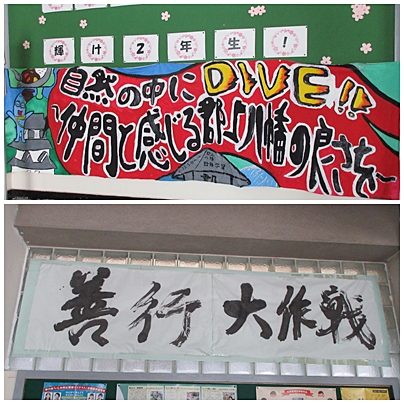 輝け2年生!
自然の中にDIVE!!
仲間と感じる郡上八幡の良さを〜
善行大作戦